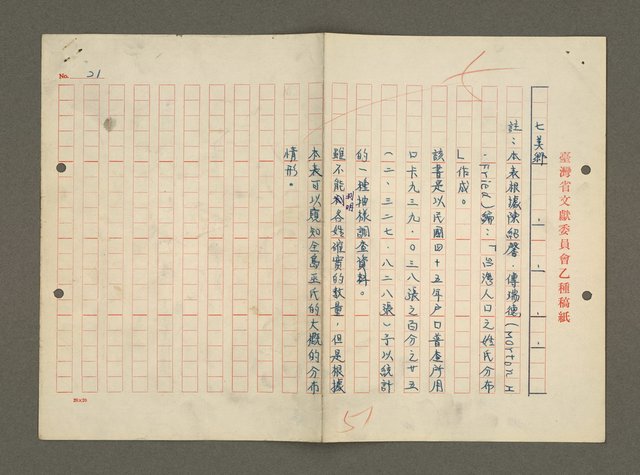 臺灣省文獻委員會乙種稿紙
七美鄉
註：本表根據陳紹馨．傅瑞德（Morton H
．Fried）編：「台灣人口之姓氏分布
」作成。
該書是以民國四十五年戶口普查所用
口卡九三九．〇三八張之百分之廿五
（二．三二七．八二八張）予以統計
的一種抽樣調查資料。
雖不能判明各姓確實的數量，但是根據
本表可以窺知全島巫氏的大概的分布
情形。
No. 21
20×20
51